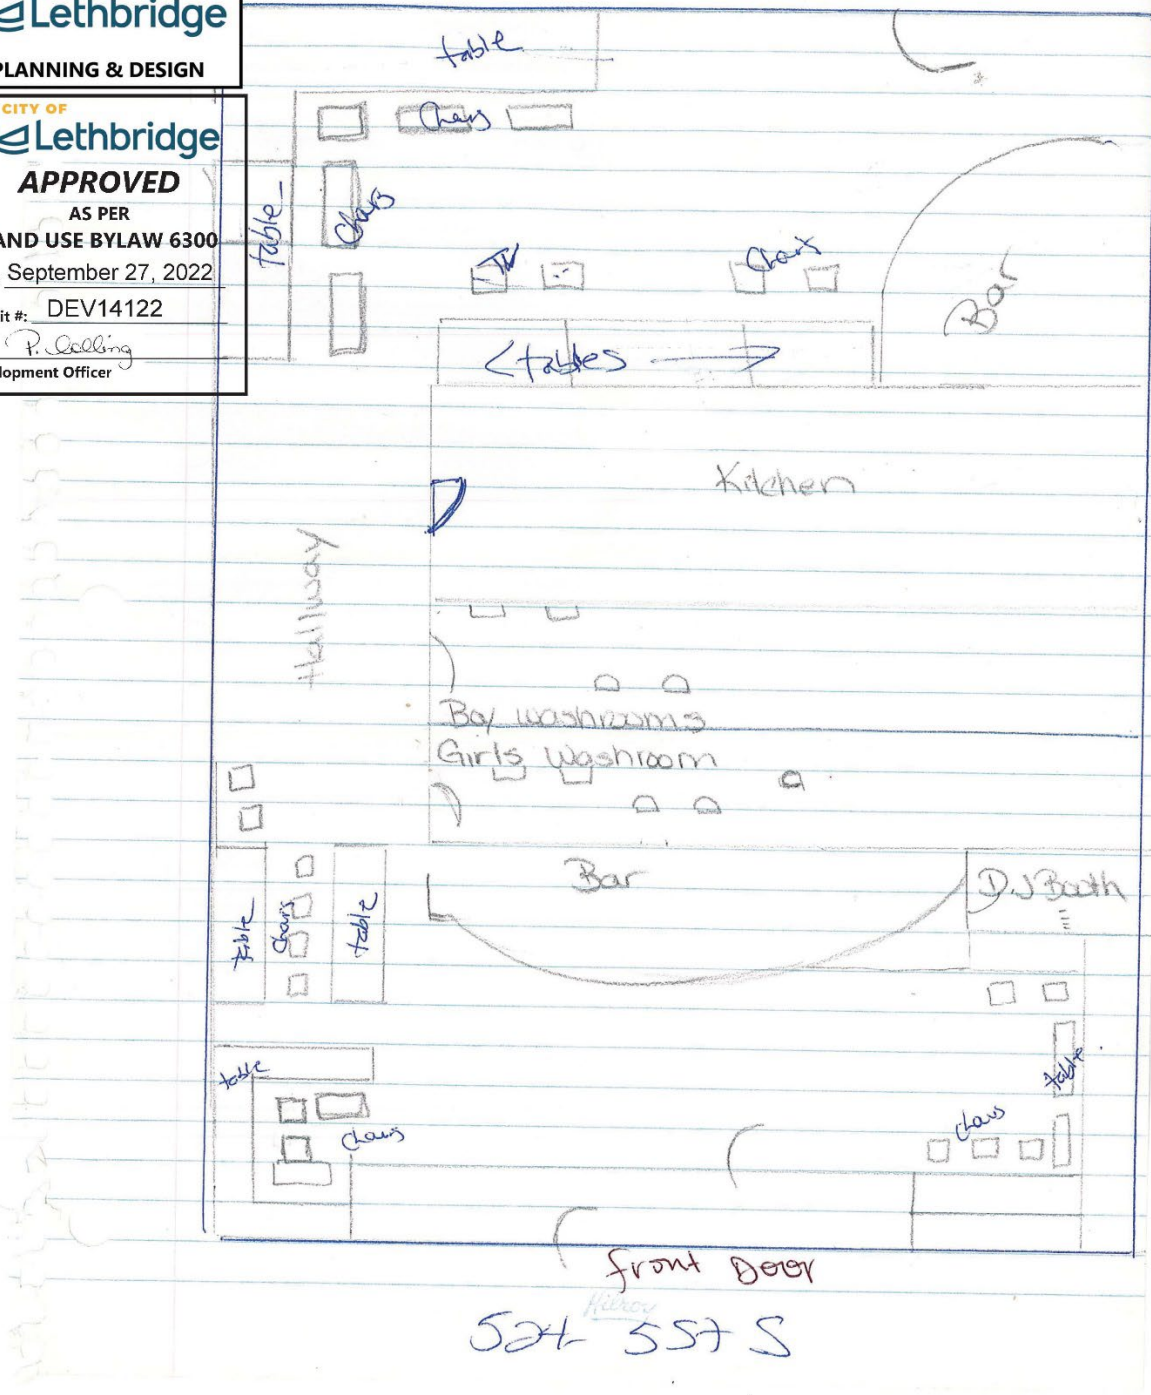 Lethbridge
PLANNING & DESIGN
CITY OF
Lethbridge
APPROVED
AS PER
AND USE BYLAW 6300
September 27, 2022
it #: DEV14122
lopment Officer
table
Chairs
table
Chairs
TV
Chairs
Bar
<tables
Kitchen
Hallway
Boy washrooms
Girls Washroom
Bar
D.J Booth
table
Chairs
table
table
Chairs
table
Chairs
front Door
Hilroy
524 5St S